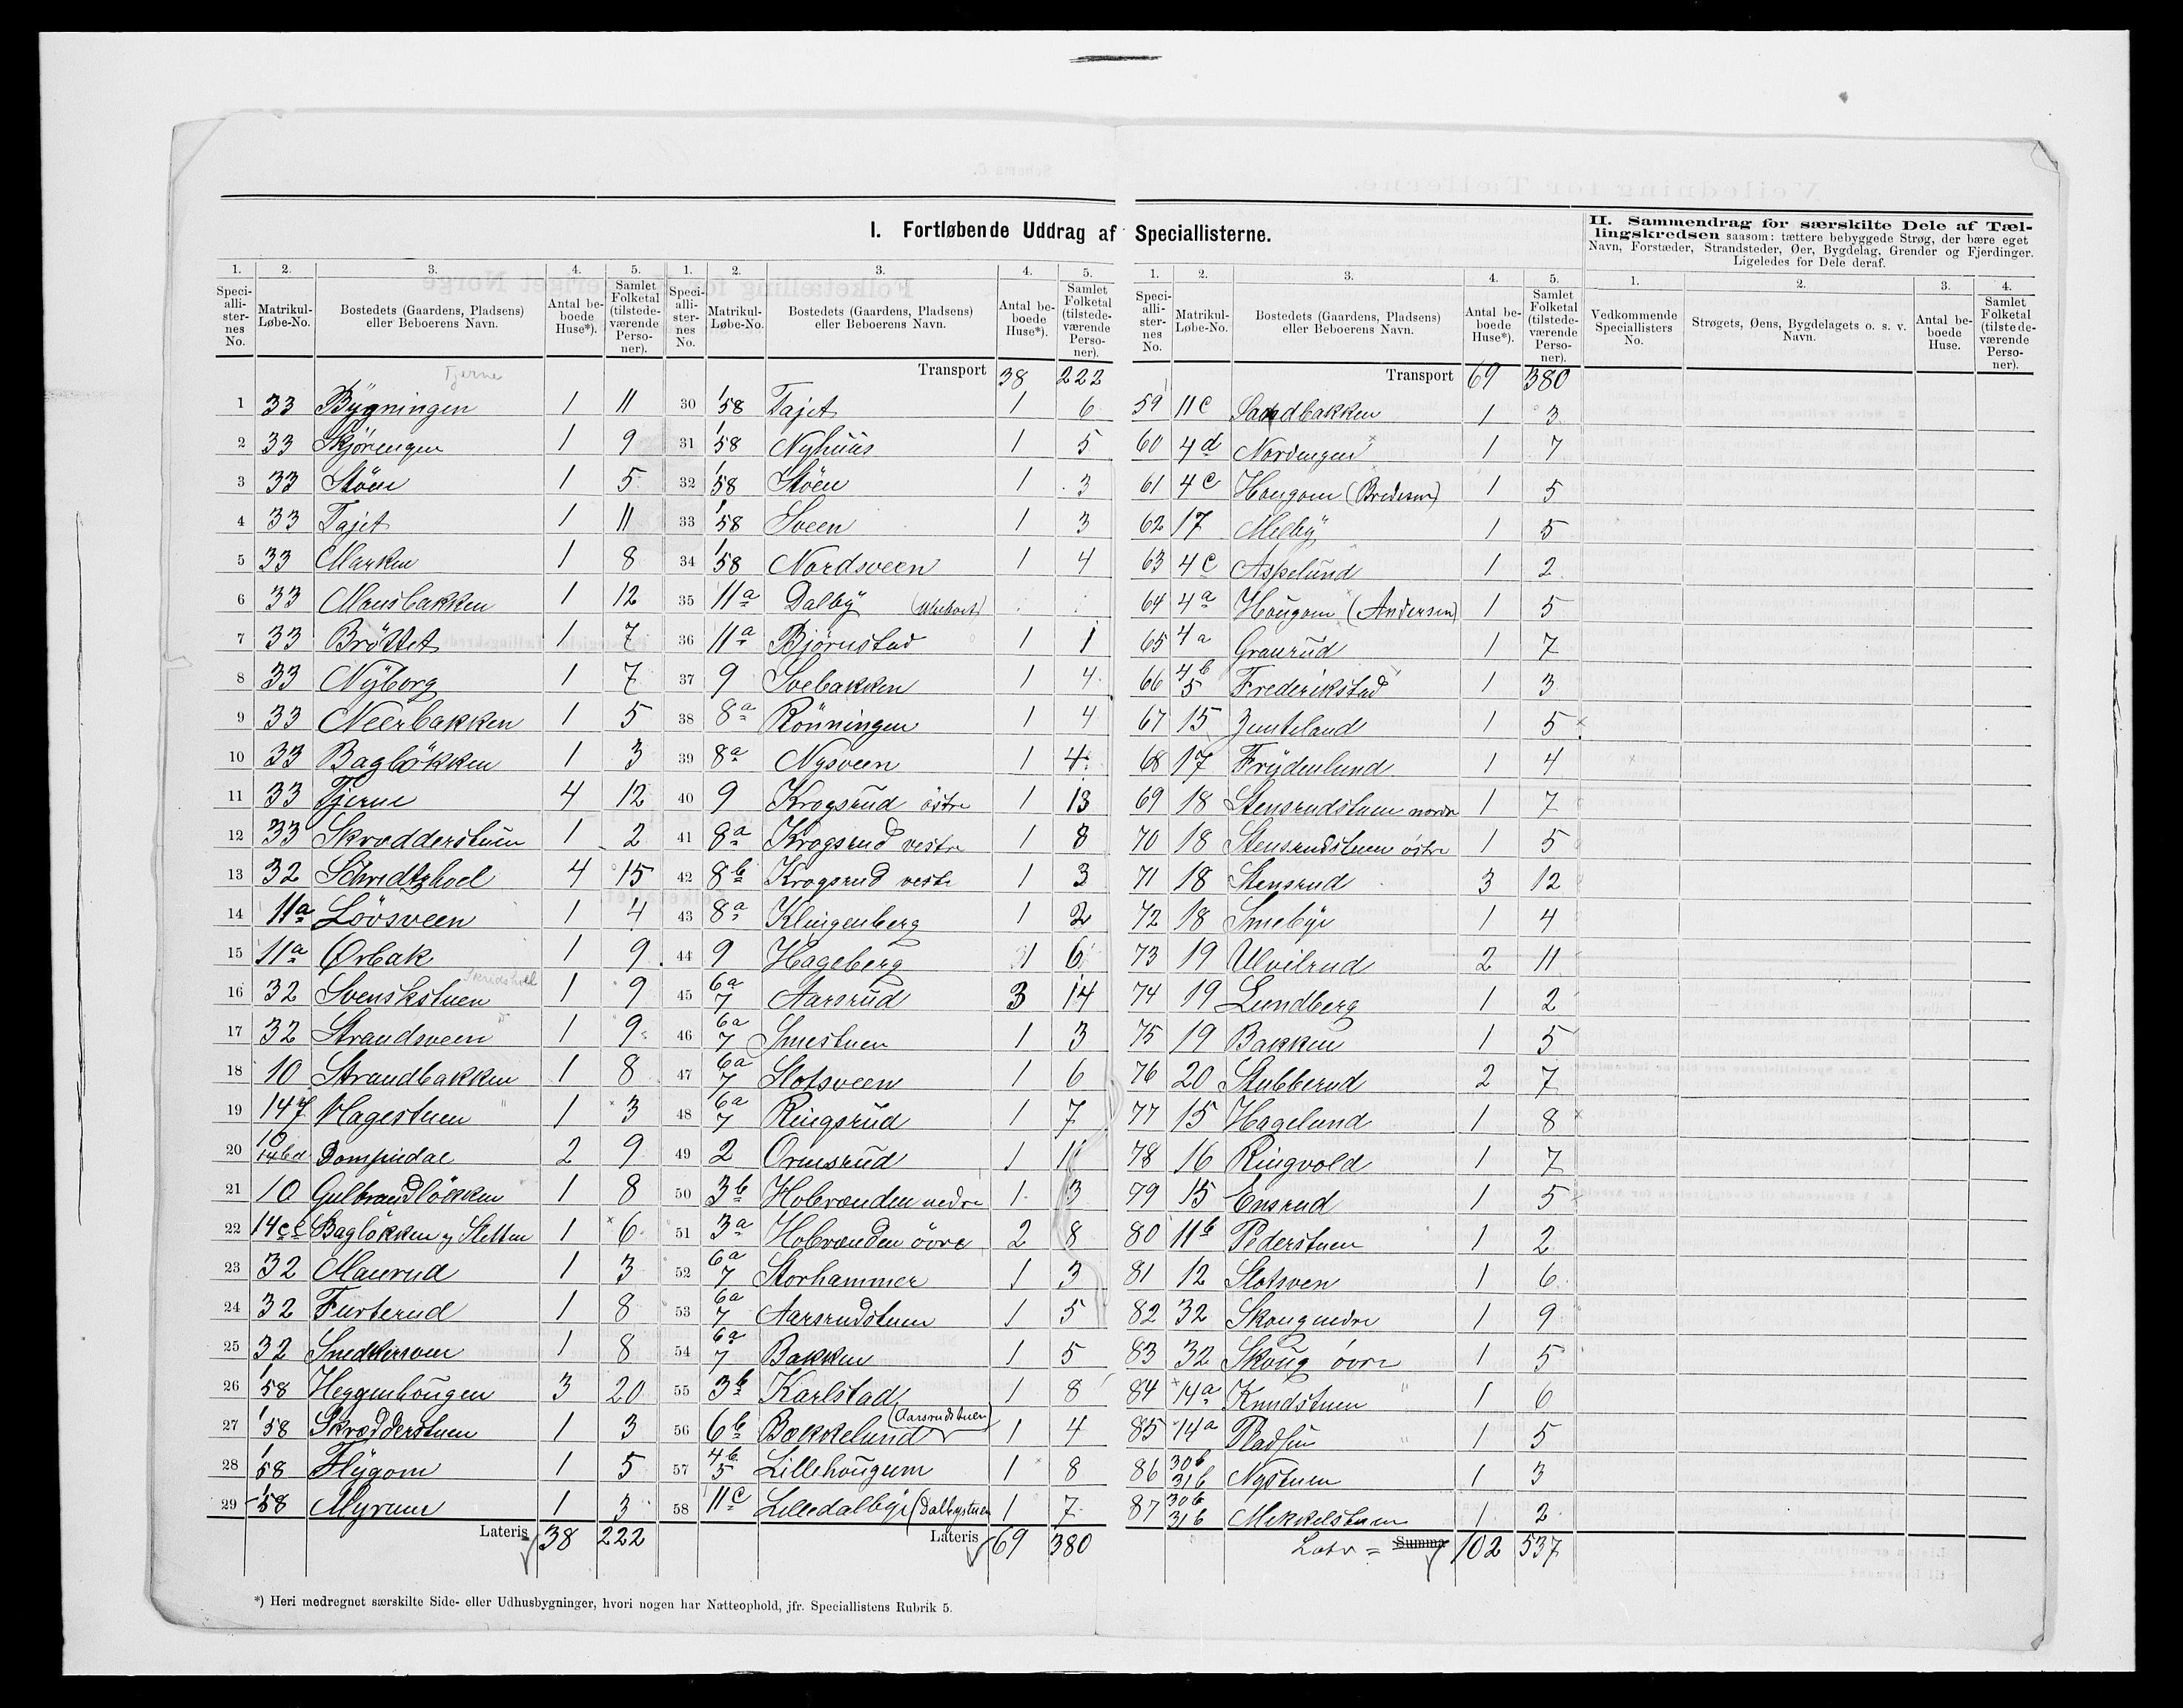 I. Fortløbende Uddrag af Speciallisterne.
II. Sammendrag for særskilte Dele af Tæl-
lingskredsen saasom: tættere bebyggede Strøg, der bære eget
Navn, Forstæder, Strandsteder, Øer, Bygdelag, Grender og Fjerdinger.
Ligeledes for Dele deraf.
1. 2. 3. 4. 5.
Speci-alli-ster-nes No. Matrikul-Løbe-No. Bostedets (Gaardens, Pladsens) eller Beboerens Navn. Antal be-boede Huse*). Samlet Folketal (tilstede-værende Perso-ner).
Tjerne
1 33 Bygningen 1 11
2 33 Skjørengen 1 9
3 33 Støen 1 5
4 33 Tajet 1 11
5 33 Marken 1 8
6 33 Mausbakken 1 12
7 33 Brøttet 1 7
8 33 Nyborg 1 7
9 33 Neerbakken 1 5
10 33 Bagløkken 1 3
11 33 Tjerne 4 12
12 33 Skrædderstuen 1 2
13 32 Schredtzhoel 4 15
14 11a Løvsveen 1 4
15 11a Ørbak 1 9
16 32 Svenskstuen Skredshoel 1 9
17 32 Strandsveen " 1 9
18 10 Strandbakken 1 8
19 147 Hagestuen " 1 3
20 10 14bd Dompendal 2 9
21 10 Gulbrandløkken 1 8
22 14c Bagløkken og Sletten 1 6
23 32 Maurud 1 3
24 32 Furterud 1 8
25 32 Snedkersveen 1 8
26 1/58 Heggenhougen 3 20
27 1/58 Skrædderstuen 1 3
28 1/58 Flygom 1 5
29 1/58 Myrum 1 3
Lateris 38 222
1. 2. 3. 4. 5.
Speci-alli-ster-nes No. Matrikul-Løbe-No. Bostedets (Gaardens, Pladsens) eller Beboerens Navn. Antal be-boede Huse*). Samlet Folketal (tilstede-værende Perso-ner).
Transport 38 222
30 1/58 Tajet 1 6
31 1/58 Nyhuus 1 5
32 1/58 Støen 1 3
33 1/58 Sveen 1 3
34 1/58 Nordsveen 1 4
35 11a Dalby (ubeboet)
36 11a Bjørnstad 1 1
37 9 Svebakken 1 4
38 8a Rønningen 1 4
39 8a Nysveen 1 4
40 9 Krogsrud østre 1 13
41 8a Krogsrud vestre 1 8
42 8b Krogsrud vestre 1 3
43 8a Klingenberg 1 2
44 9 Hageberg 1 6
45 6a 7 Aarsrud 3 14
46 6a 7 Smestuen 1 3
47 6a 7 Slotsveen 1 6
48 6a 7 Ringsrud 1 7
49 2 Ormsrud 1 11
50 3b Hobrænden nedre 1 3
51 3a Hobrænden øvre 2 8
52 6a 7 Storhammer 1 3
53 6a 7 Aarsrudstuen 1 5
54 6a 7 Bakken 1 5
55 3b Karlstad 1 8
56 6b Bækkelund (Aarsrudstuen) 1 4
57 4b 5 Lillehougum 1 8
58 11c Lilledalby (Dalbystuen 1 7
Lateris 69 380
1. 2. 3. 4. 5.
Speci-alli-ster-nes No. Matrikul-Løbe-No. Bostedets (Gaardens, Pladsens) eller Beboerens Navn. Antal be-boede Huse*). Samlet Folketal (tilstede-værende Perso-ner).
Transport 69 380
59 11c Sandbakken 1 3
60 4d Nordengen 1 7
61 4c Hougom (Bredesen) 1 5
62 17 Melby 1 5
63 4c Aspelund 1 2
64 4a Hougom (Andersen) 1 5
65 4a Granrud 1 7
66 4b 5 Frederikstad 1 3
67 15 Janteland 1 5
68 17 Frydenlund 1 4
69 18 Stensrudstuen nordre 1 7
70 18 Stensrudstuen østre 1 5
71 18 Stensrud 3 12
72 18 Smebye 1 4
73 19 Ulvilrud 2 11
74 19 Lundberg 1 2
75 19 Bakken 1 5
76 20 Stubberud 2 7
77 15 Hagelund 1 8
78 16 Ringvold 1 7
79 15 Ensrud 1 5
80 11b Pederstuen 1 2
81 12 Slotsven 1 6
82 32 Skoug nedre 1 9
83 32 Skoug øvre 1 5
84 14a Knudstuen " 1 6
85 14a Pladsen " 1 5
86 30b 31b Nystuen 1 3
87 30b 31b Mekkelstuen 1 2
Latr = Summa 102 537
1. 2. 3. 4.
Vedkommende Speciallisters No. Strøgets, Øens, Bygdelagets o. s. v. Navn. Antal be-boede Huse. Samlet Folketal (tilstede-værende Perso-ner).
*) Heri medregnet særskilte Side- eller Udhusbygninger, hvori nogen har Natteophold, jfr. Speciallistens Rubrik 5.